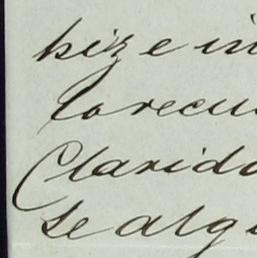 hize in
lo recu
Clarida
se algu